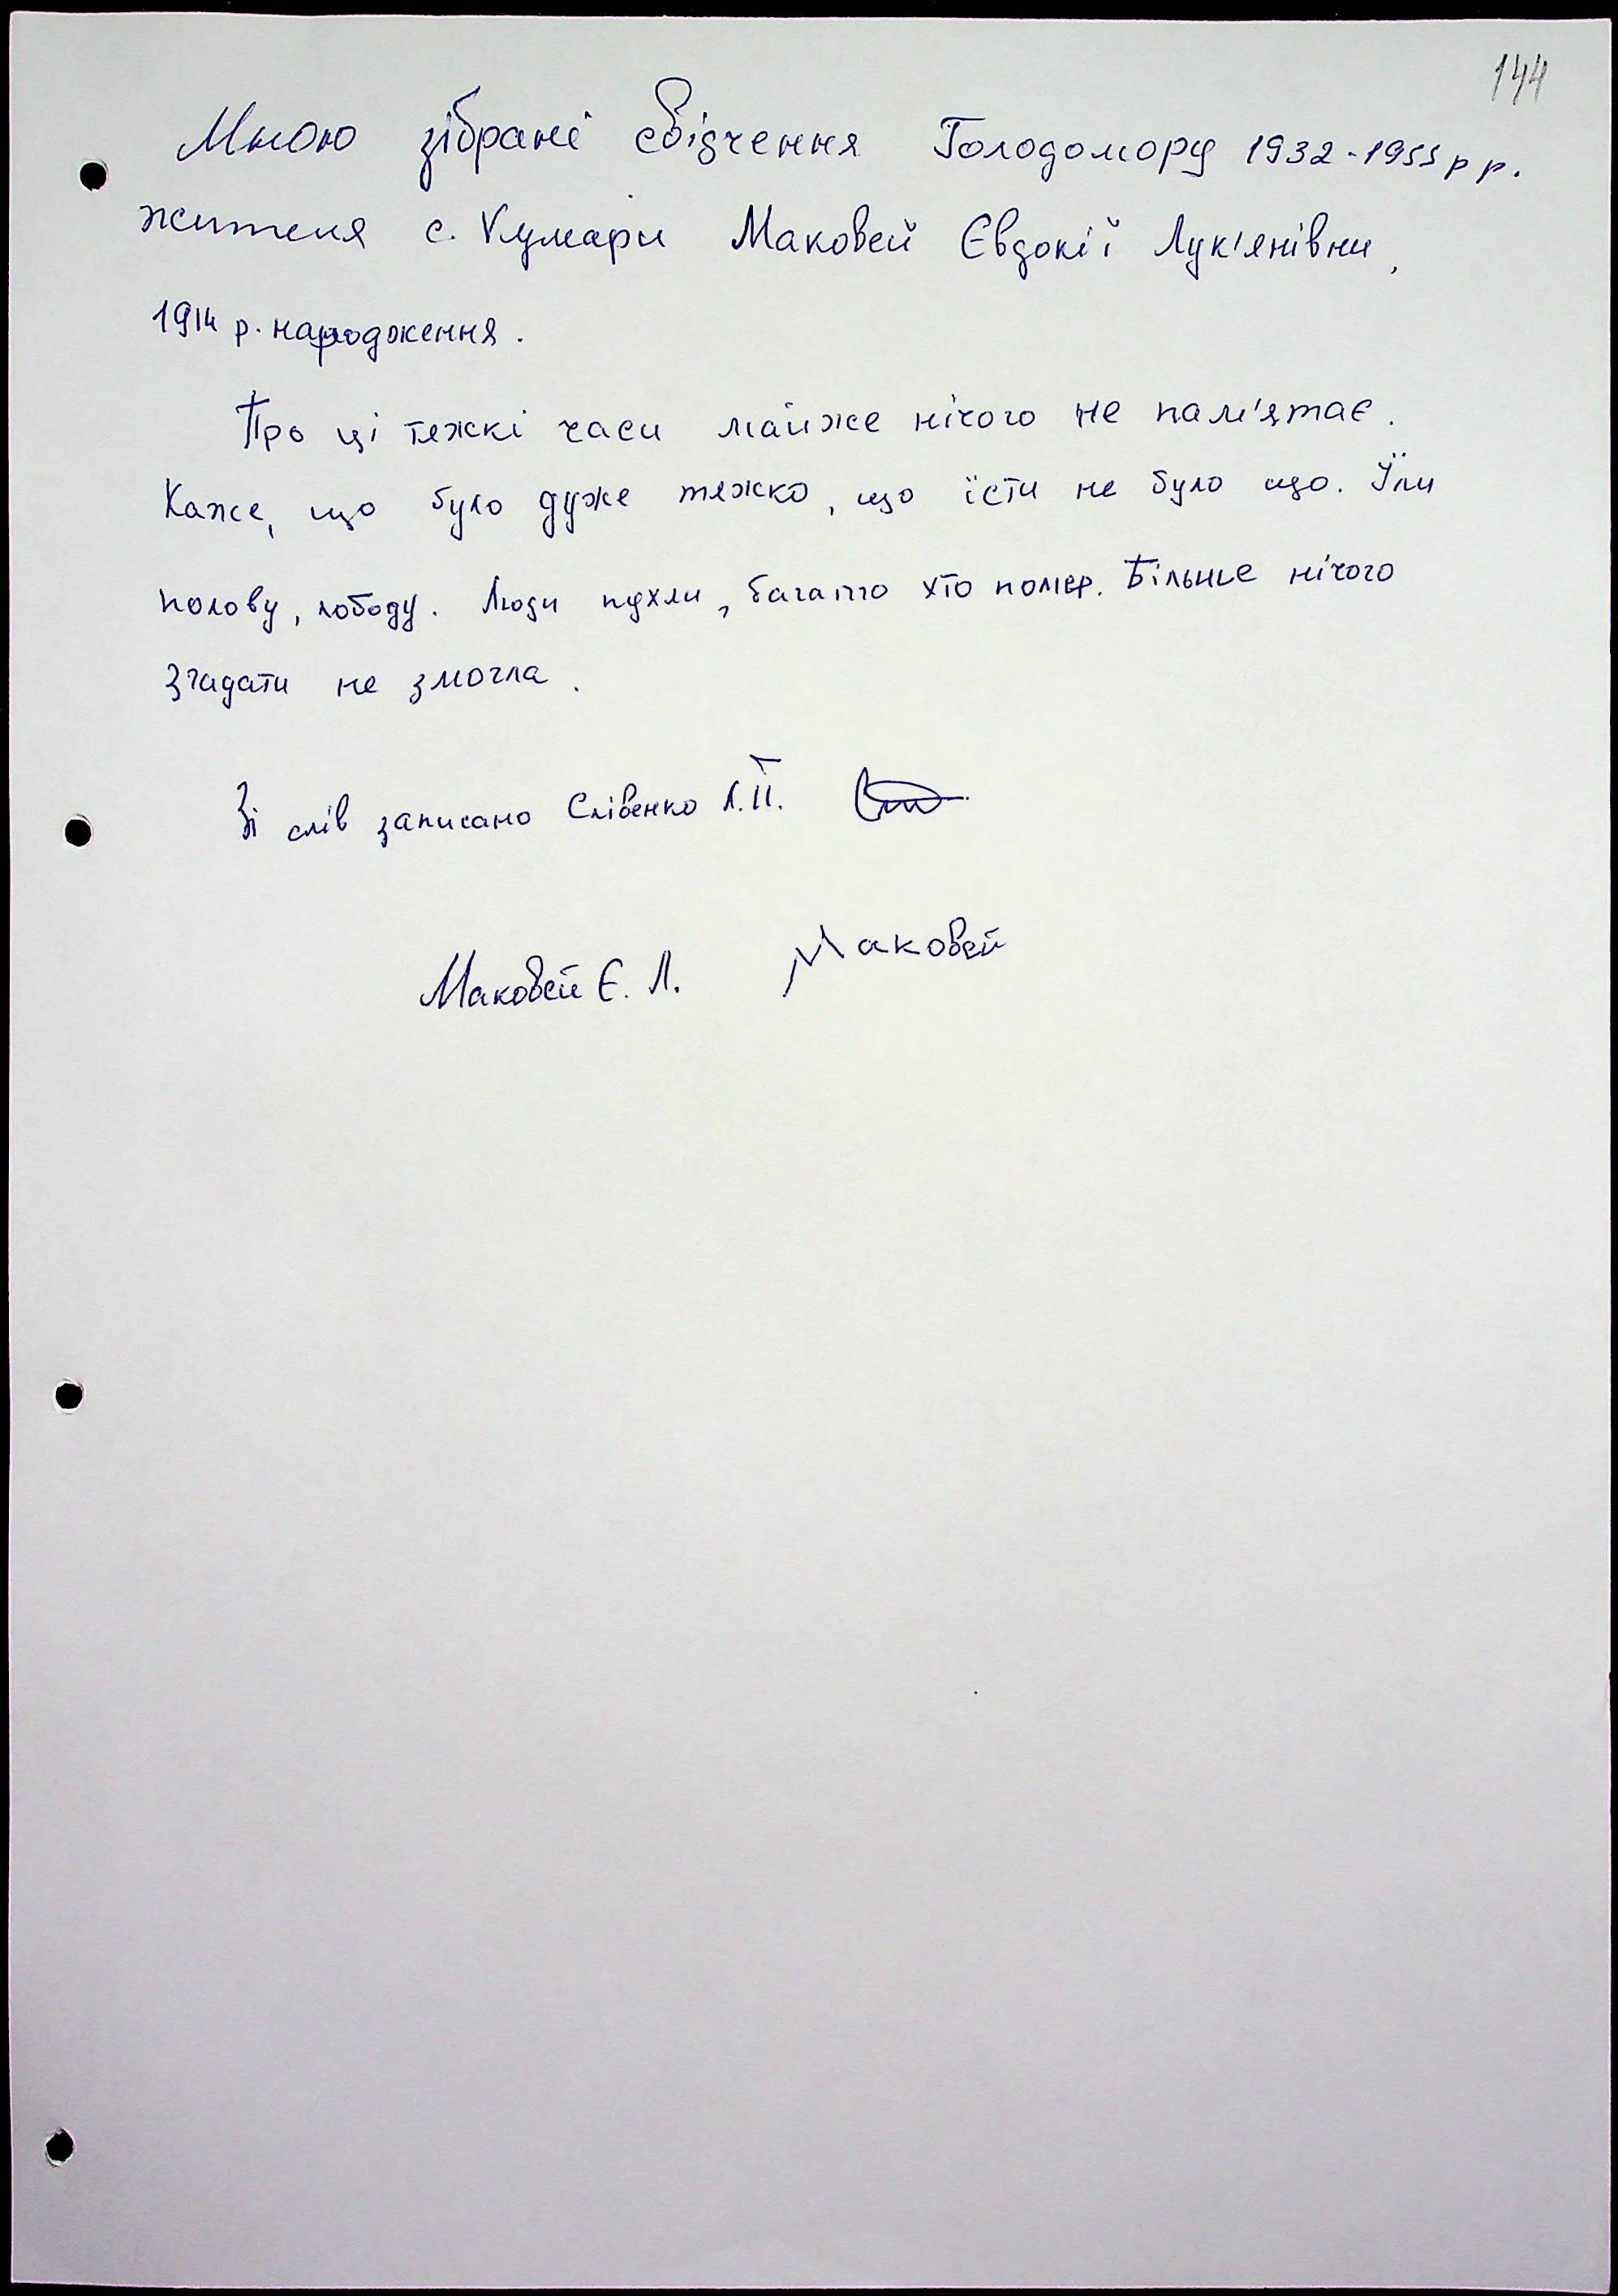 144
Мною зібрані свідчення Голодомору 1932-1933 р р.
жителя с. Кумари Маковей Євдокії Лук'янівни,
1914 р. народження.
Про ці тяжкі часи майже нічого не пам'ятає.
Каже, що було дуже тяжко, що їсти не було що. Їли
полову, лободу. Люди пухли, багато хто помер. Більше нічого
згадати не змогла.
Зі слів записано Слівенко Л.П.
Маковей Є. Л. Маковей